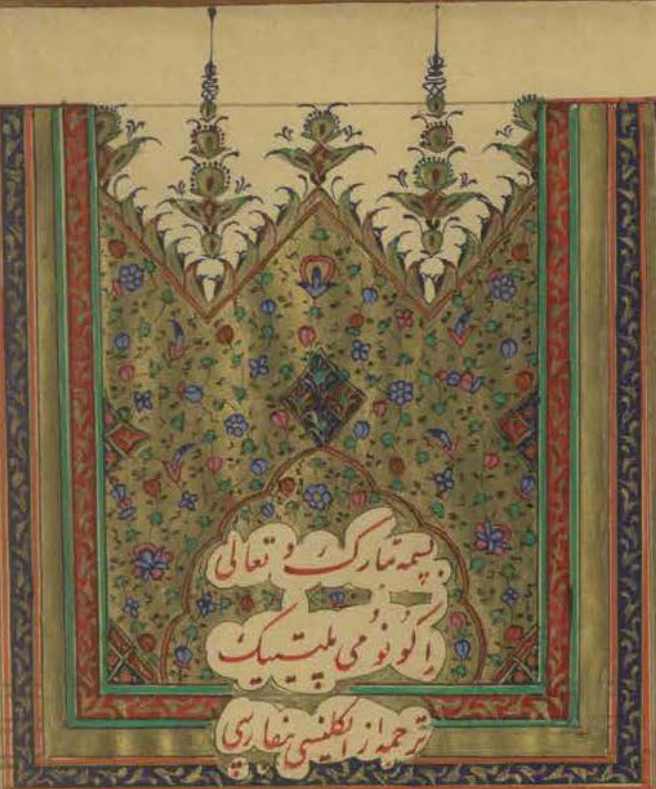 بسمه تبارک و تعالی
اِکونُومی پلیتیک
ترجمه از انگلیسی بفارسی